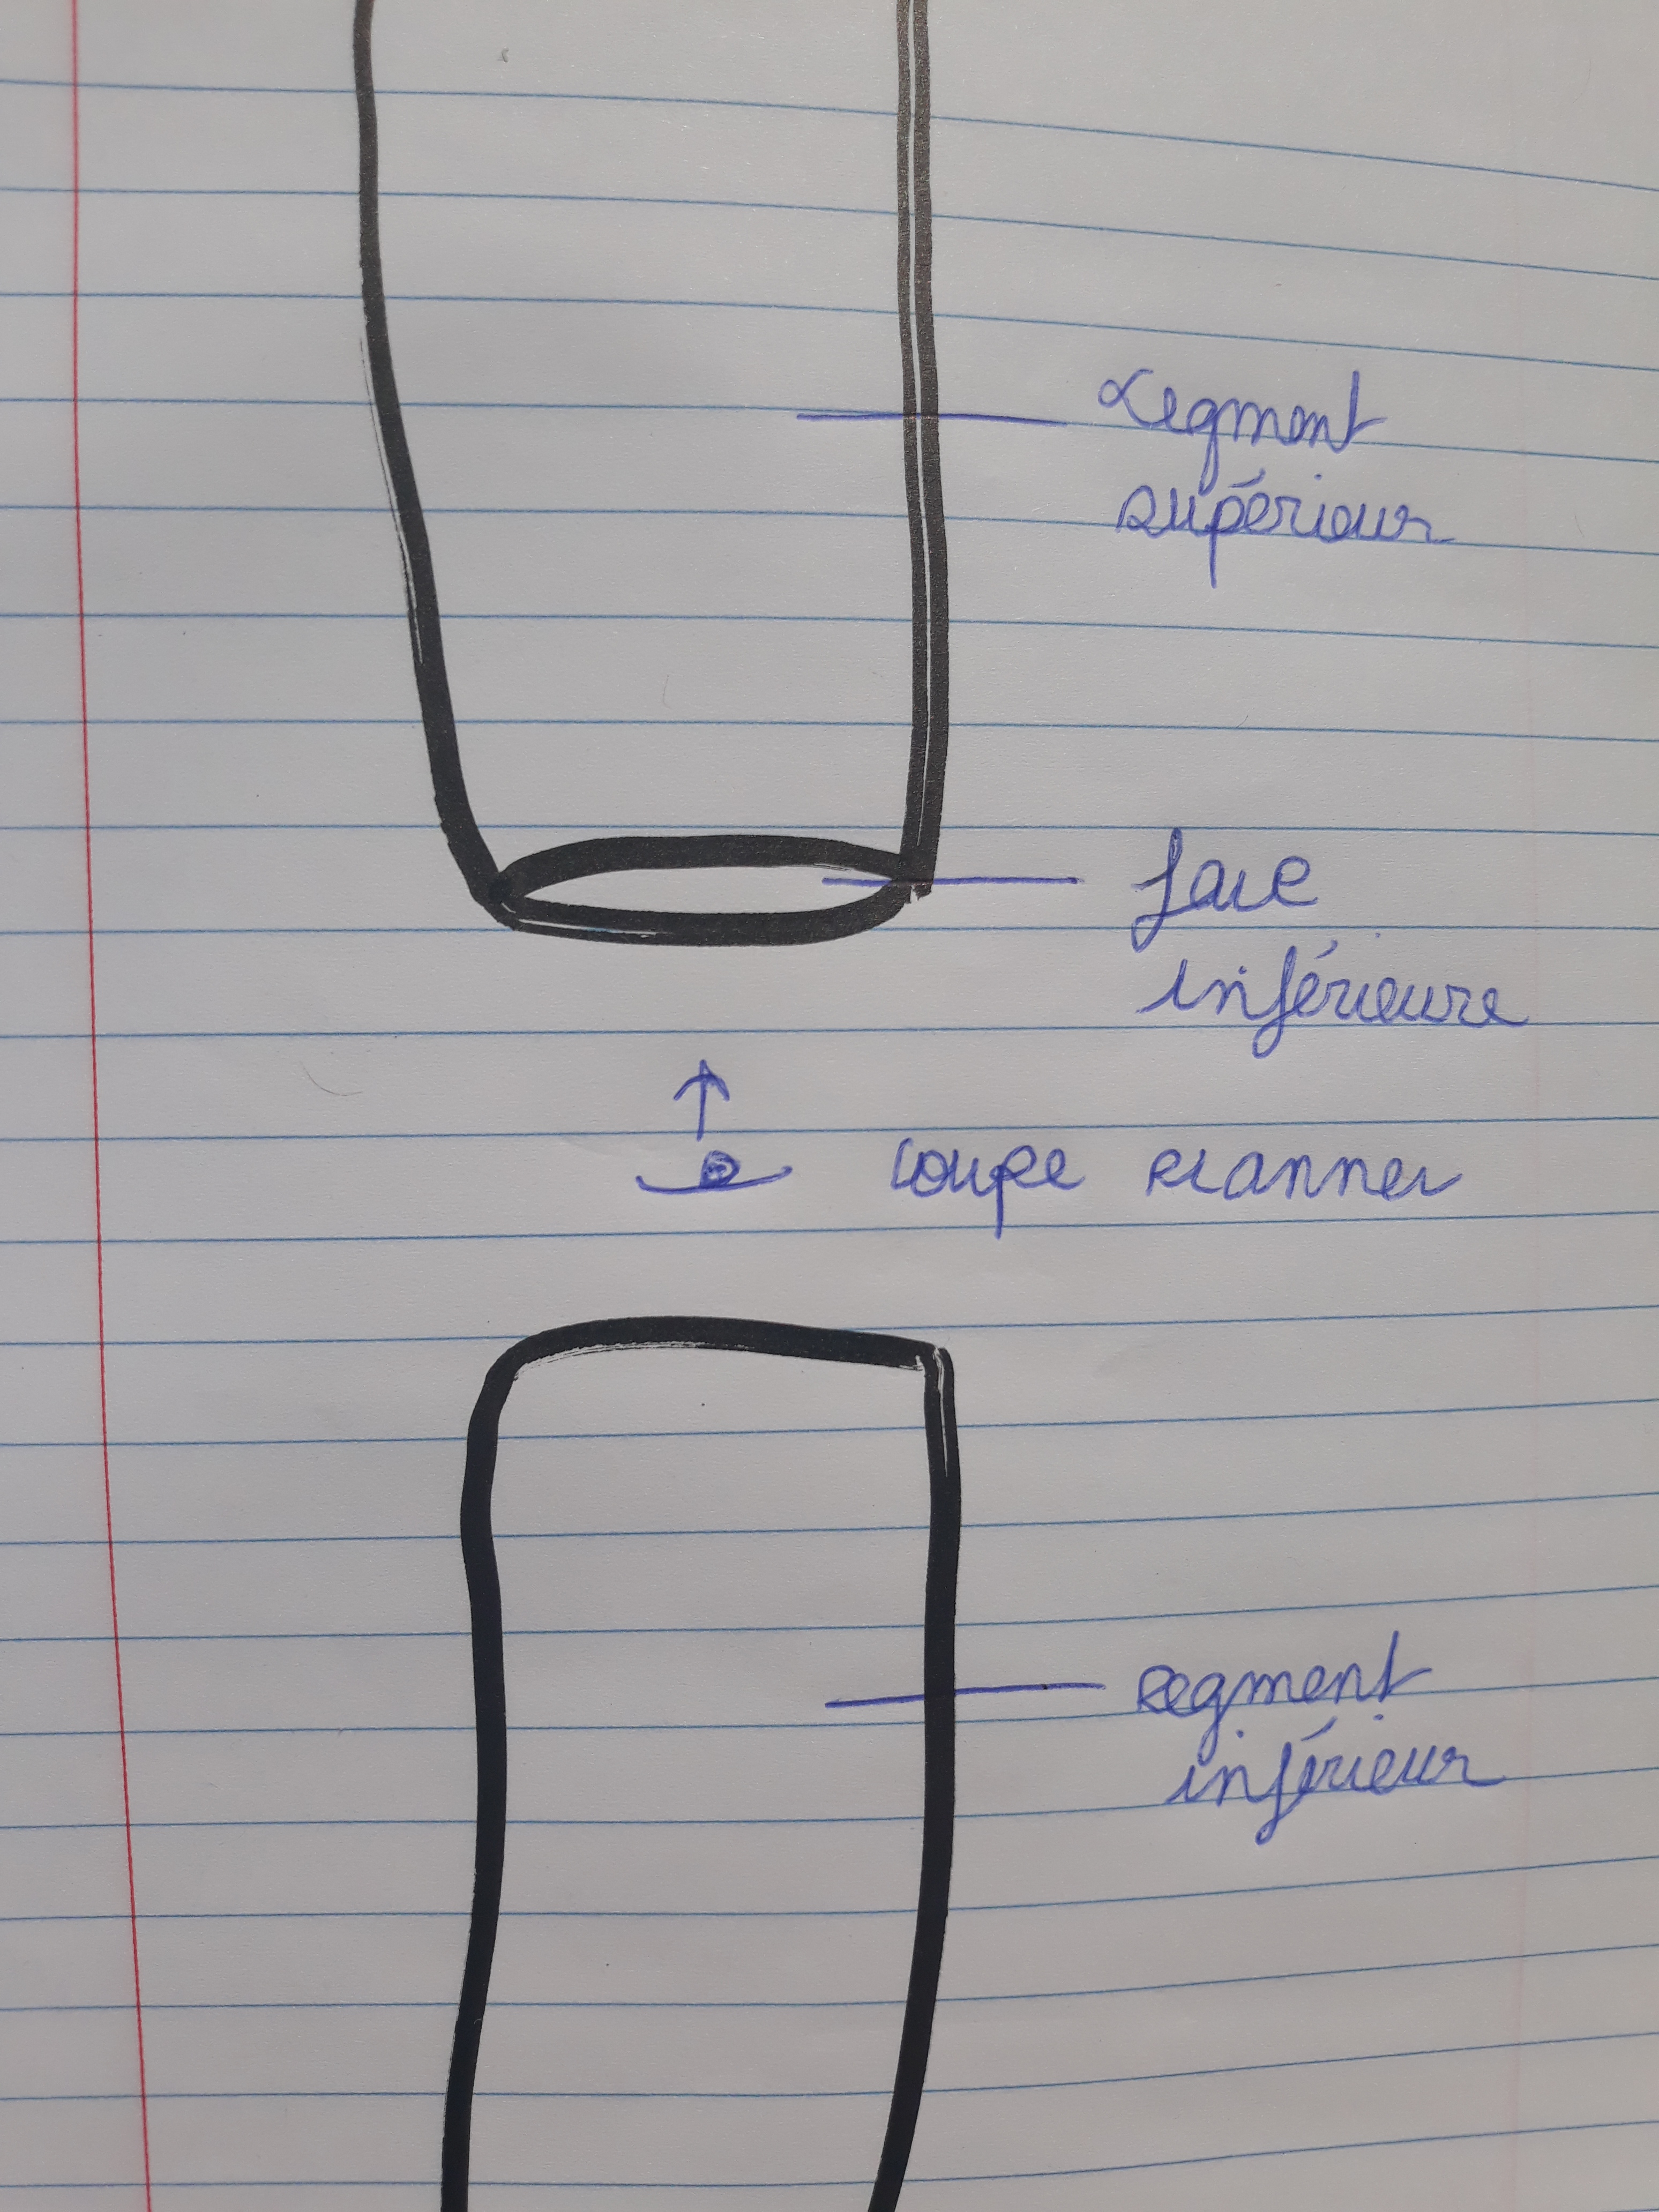 segment
supérieur
face
inférieure
coupe scanner
segment
inférieur